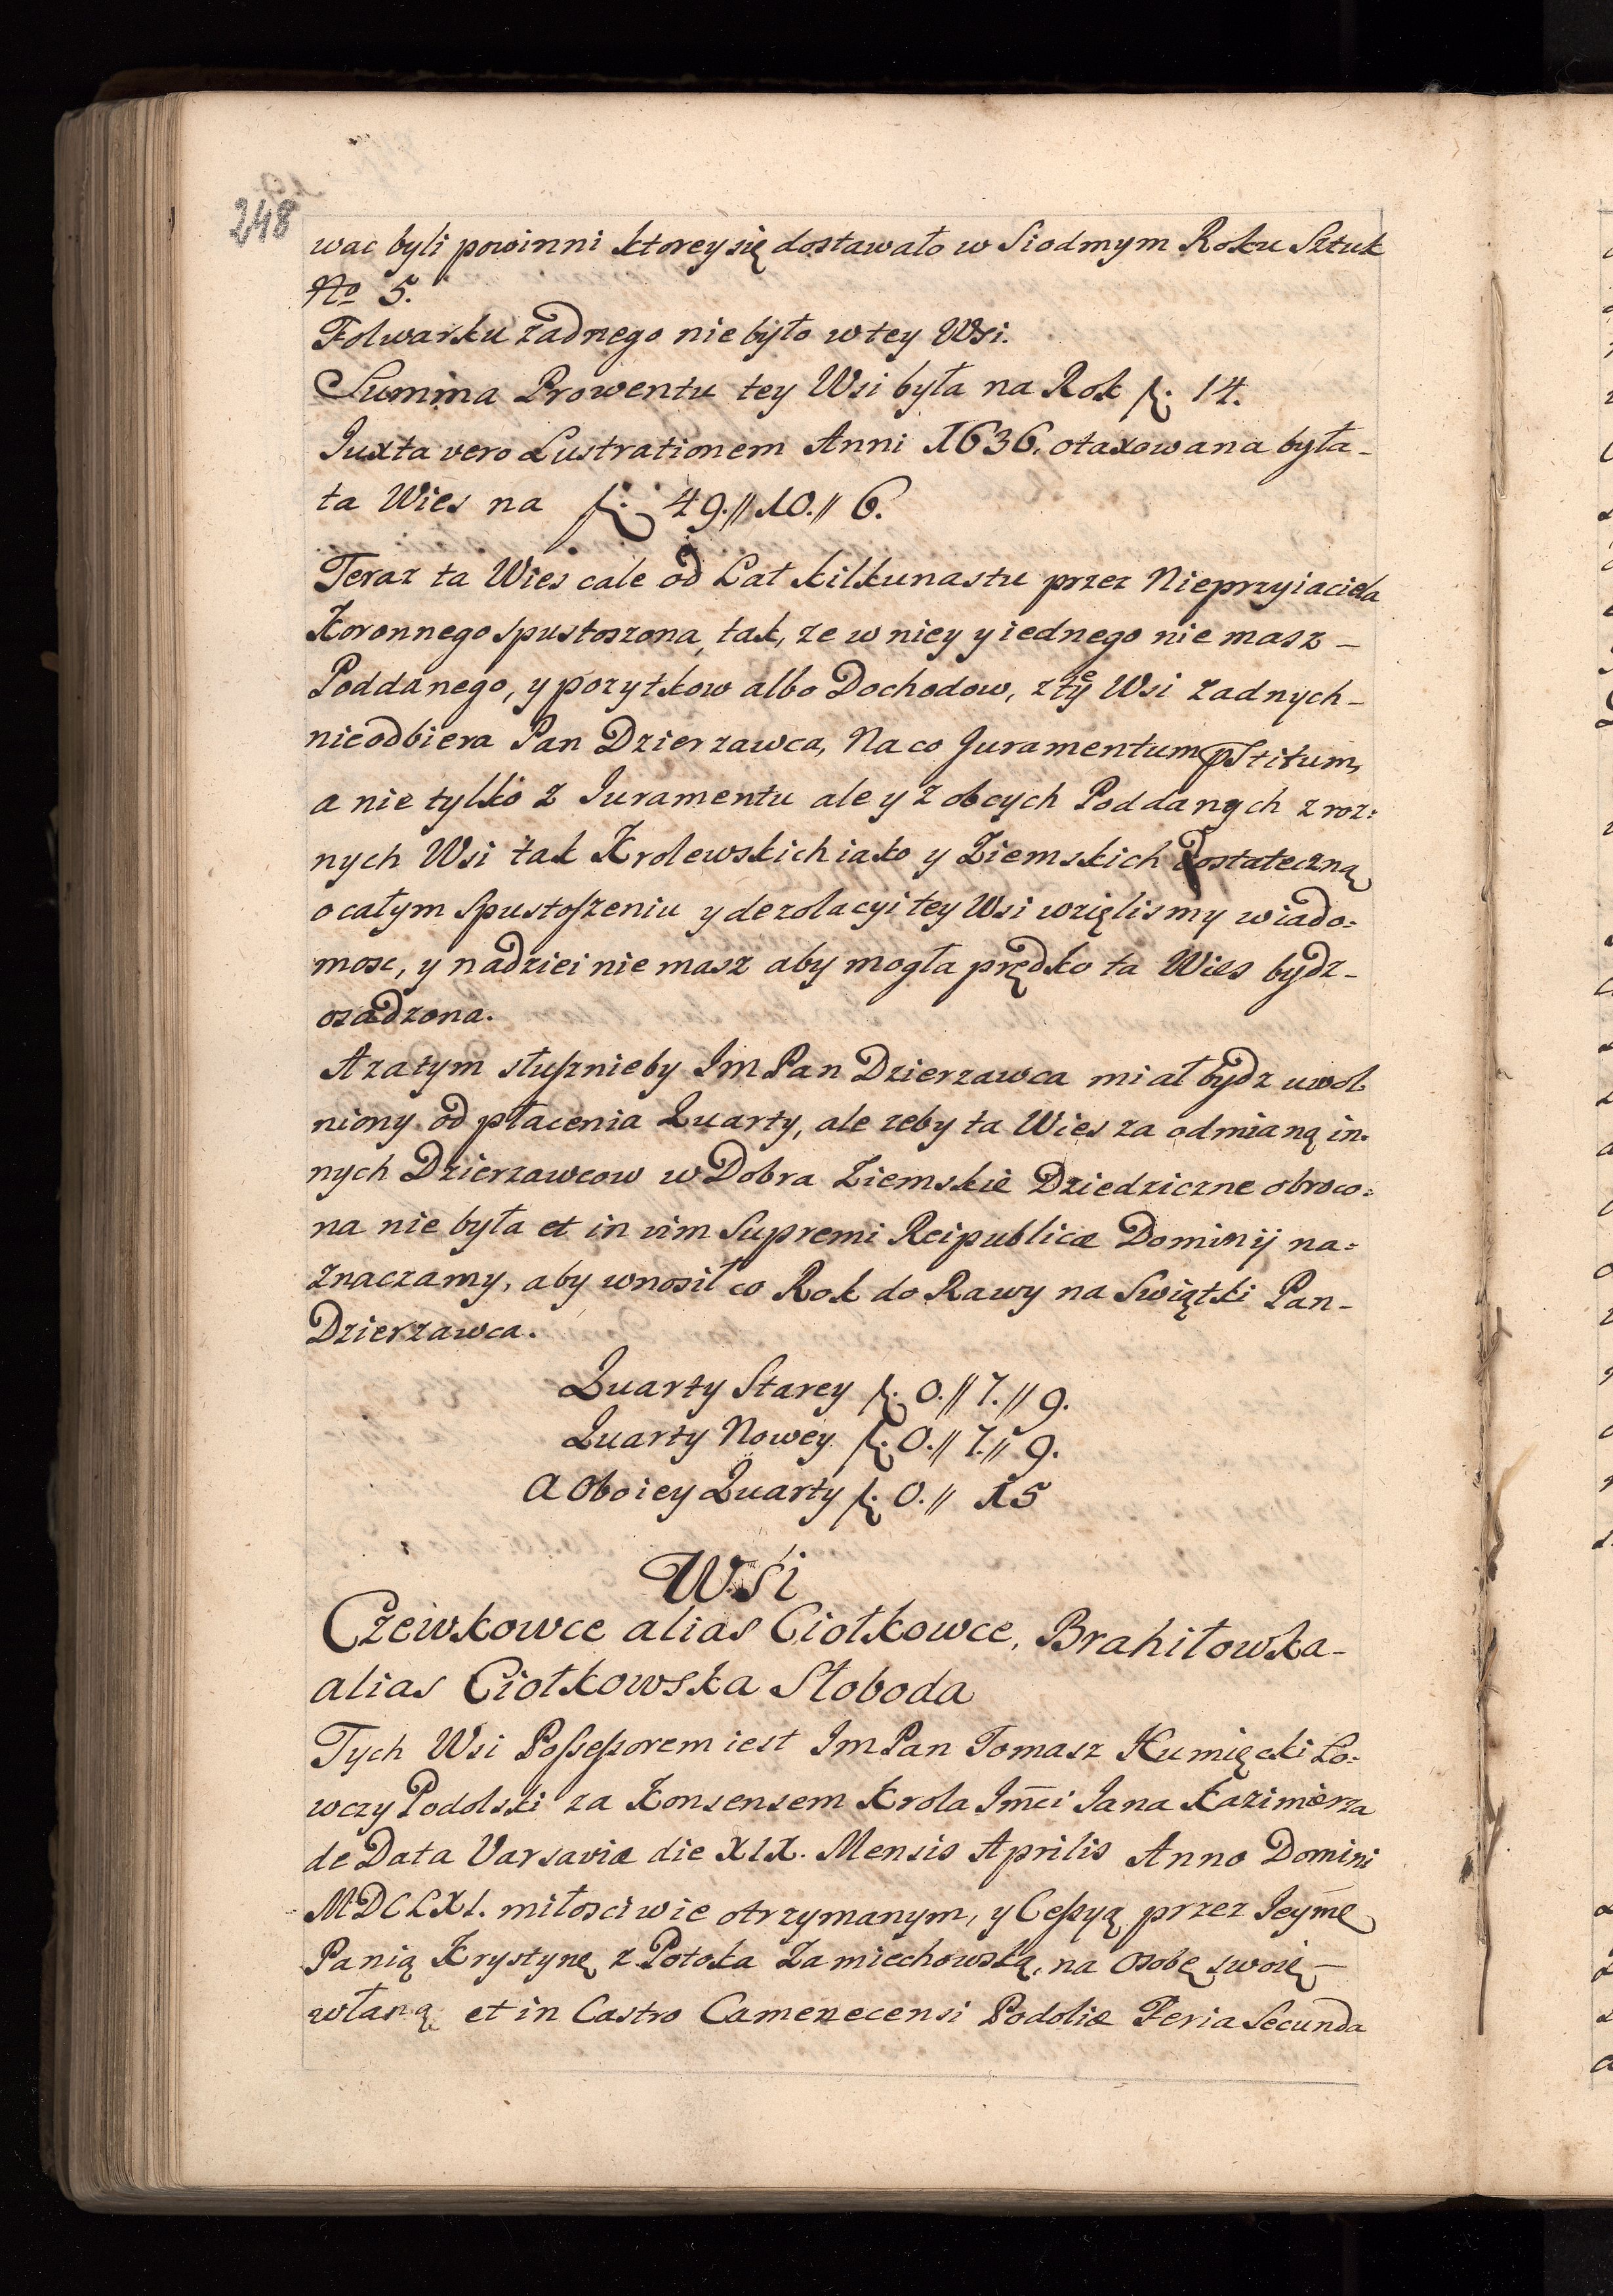 248
wac byli powinni ktorey się dostawało w Siodmym Roku Sztuk
No 5.
Folwarku zadnego nie było w tey Wsi.
Summa Prowentu tey Wsi była na Rok f. 14.
Juxta vero Lustrationem Anni 1636. otaxowana była -
ta Wies na f. 49.// 10.// 6.
Teraz ta Wies cale od Lat kilkunastu przez Nieprzyiaciela
Koronnego spustoszona, tak, ze w niey y iednego nie masz -
Poddanego, y pozytkow albo Dochodow, z tey Wsi zadnych -
nieodbiera Pan Dzierzawca, Na co Juramentum pstitum,
a nie tylko z Iuramentu ale y z obcych Poddanych z roz:
nych Wsi tak Krolewskich iako y Ziemskich dostateczną
o całym Spustoszeniu y dezolacyi tey Wsi wzięlismy wiado:
mosc, y nadziei nie masz aby mogła prędko ta Wies bydz -
osadzona.
A zatym słusznie by Im Pan Dzierzawca miał bydz uwol
niony od płacenia Quarty, ale zeby ta Wies za odmianą in:
nych Dzierzawcow w Dobra Ziemskie Dziedziczne obroco:
na nie była et in vim Supremi Reipublicæ Dominij na:
znaczamy, aby wnosił co Rok do Rawy na Swiątki Pan -
Dzierzawca.
Quarty Starey f. 0.// 7.// 9.
Quarty Nowey f. 0.// 7.// 9.
A Oboiey Quarty f. 0.// 15
Wsi
Czewkowce alias Ciołkowce, Brahiłowka -
alias Ciołkowska Słoboda
Tych Wsi Possessorem iest Im Pan Tomasz Humięcki Ło:
wczy Podolski za Konsensem Krola Jmci Jana Kazimierza
de Data Varsaviæ die XIX. Mensis Aprilis Anno Domini
MDCLXI. miłosciwie otrzymanym, y Cessyą przez Jeymę
Panią Krystynę z Potoka Zamiechowską, na osobę swoię -
własną et in Castro Camenecensi Podoliæ Feria Secunda